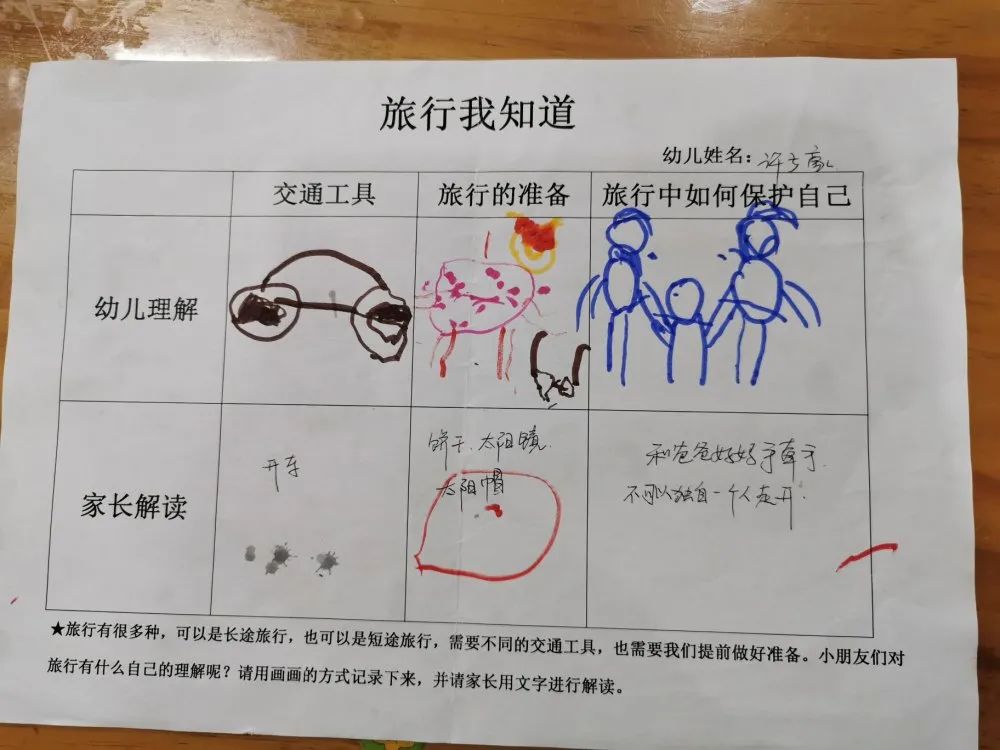 旅行我知道
幼儿姓名：许
交通工具 旅行的准备 旅行中如何保护自己
幼儿理解
家长解读
开车
饼干、太阳镜
太阳帽
和爸爸妈妈手牵手
不可以独自一个人走开.
★旅行有很多种，可以是长途旅行，也可以是短途旅行，需要不同的交通工具，也需要我们提前做好准备。小朋友们对
旅行有什么自己的理解呢？请用画画的方式记录下来，并请家长用文字进行解读。